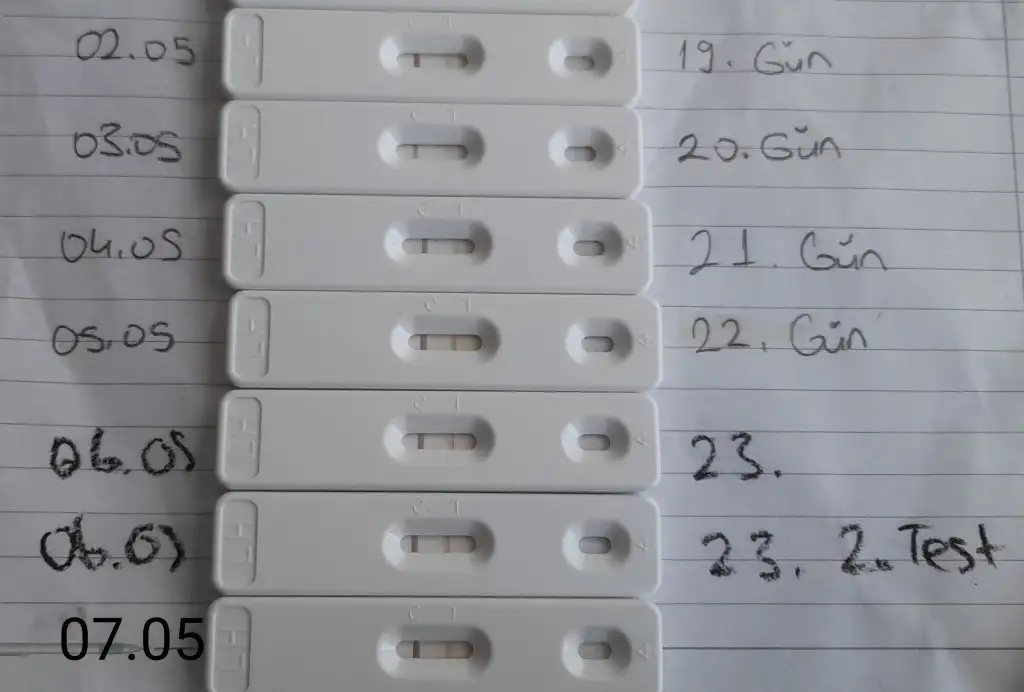 02.05 19. Gün
03.05 20. Gün
C T
04.05 21. Gün
C T
05.05 22. Gün
C T
06.05 23.
C T
06.05 23. 2. Test
C T
07.05